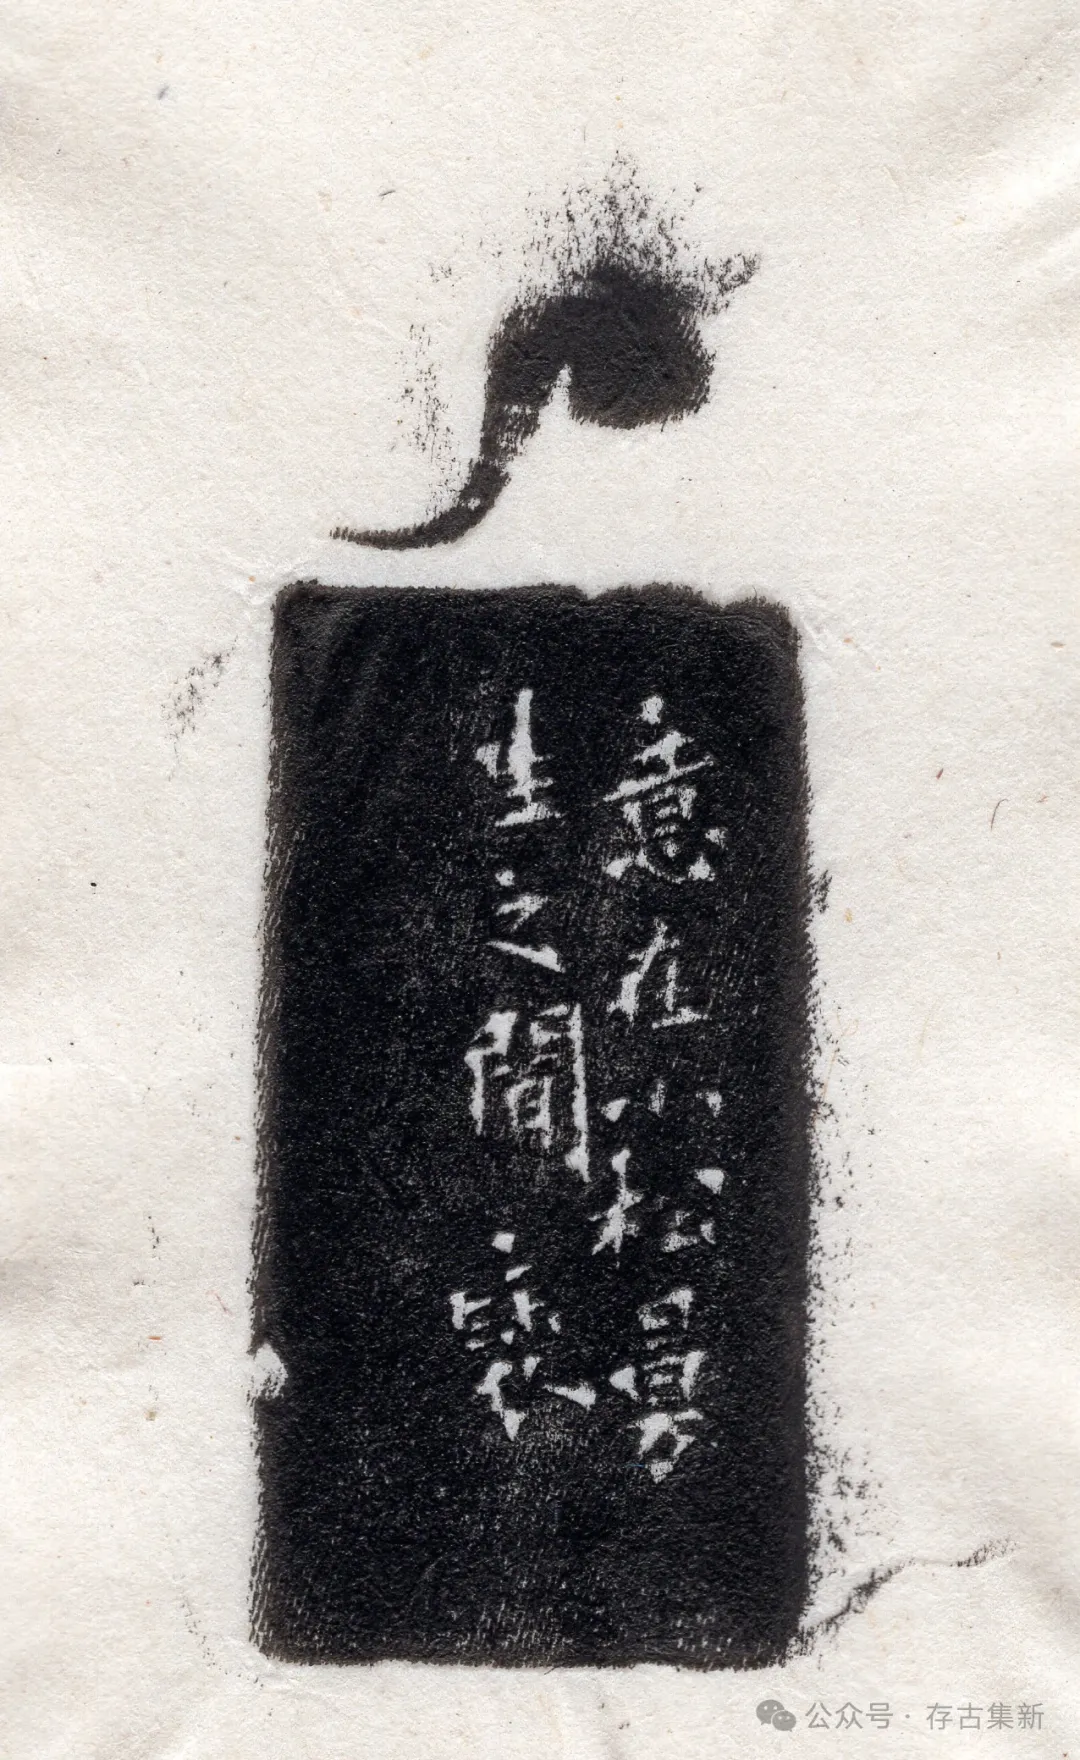 意在小松曼
生之間
公众号 · 存古集新